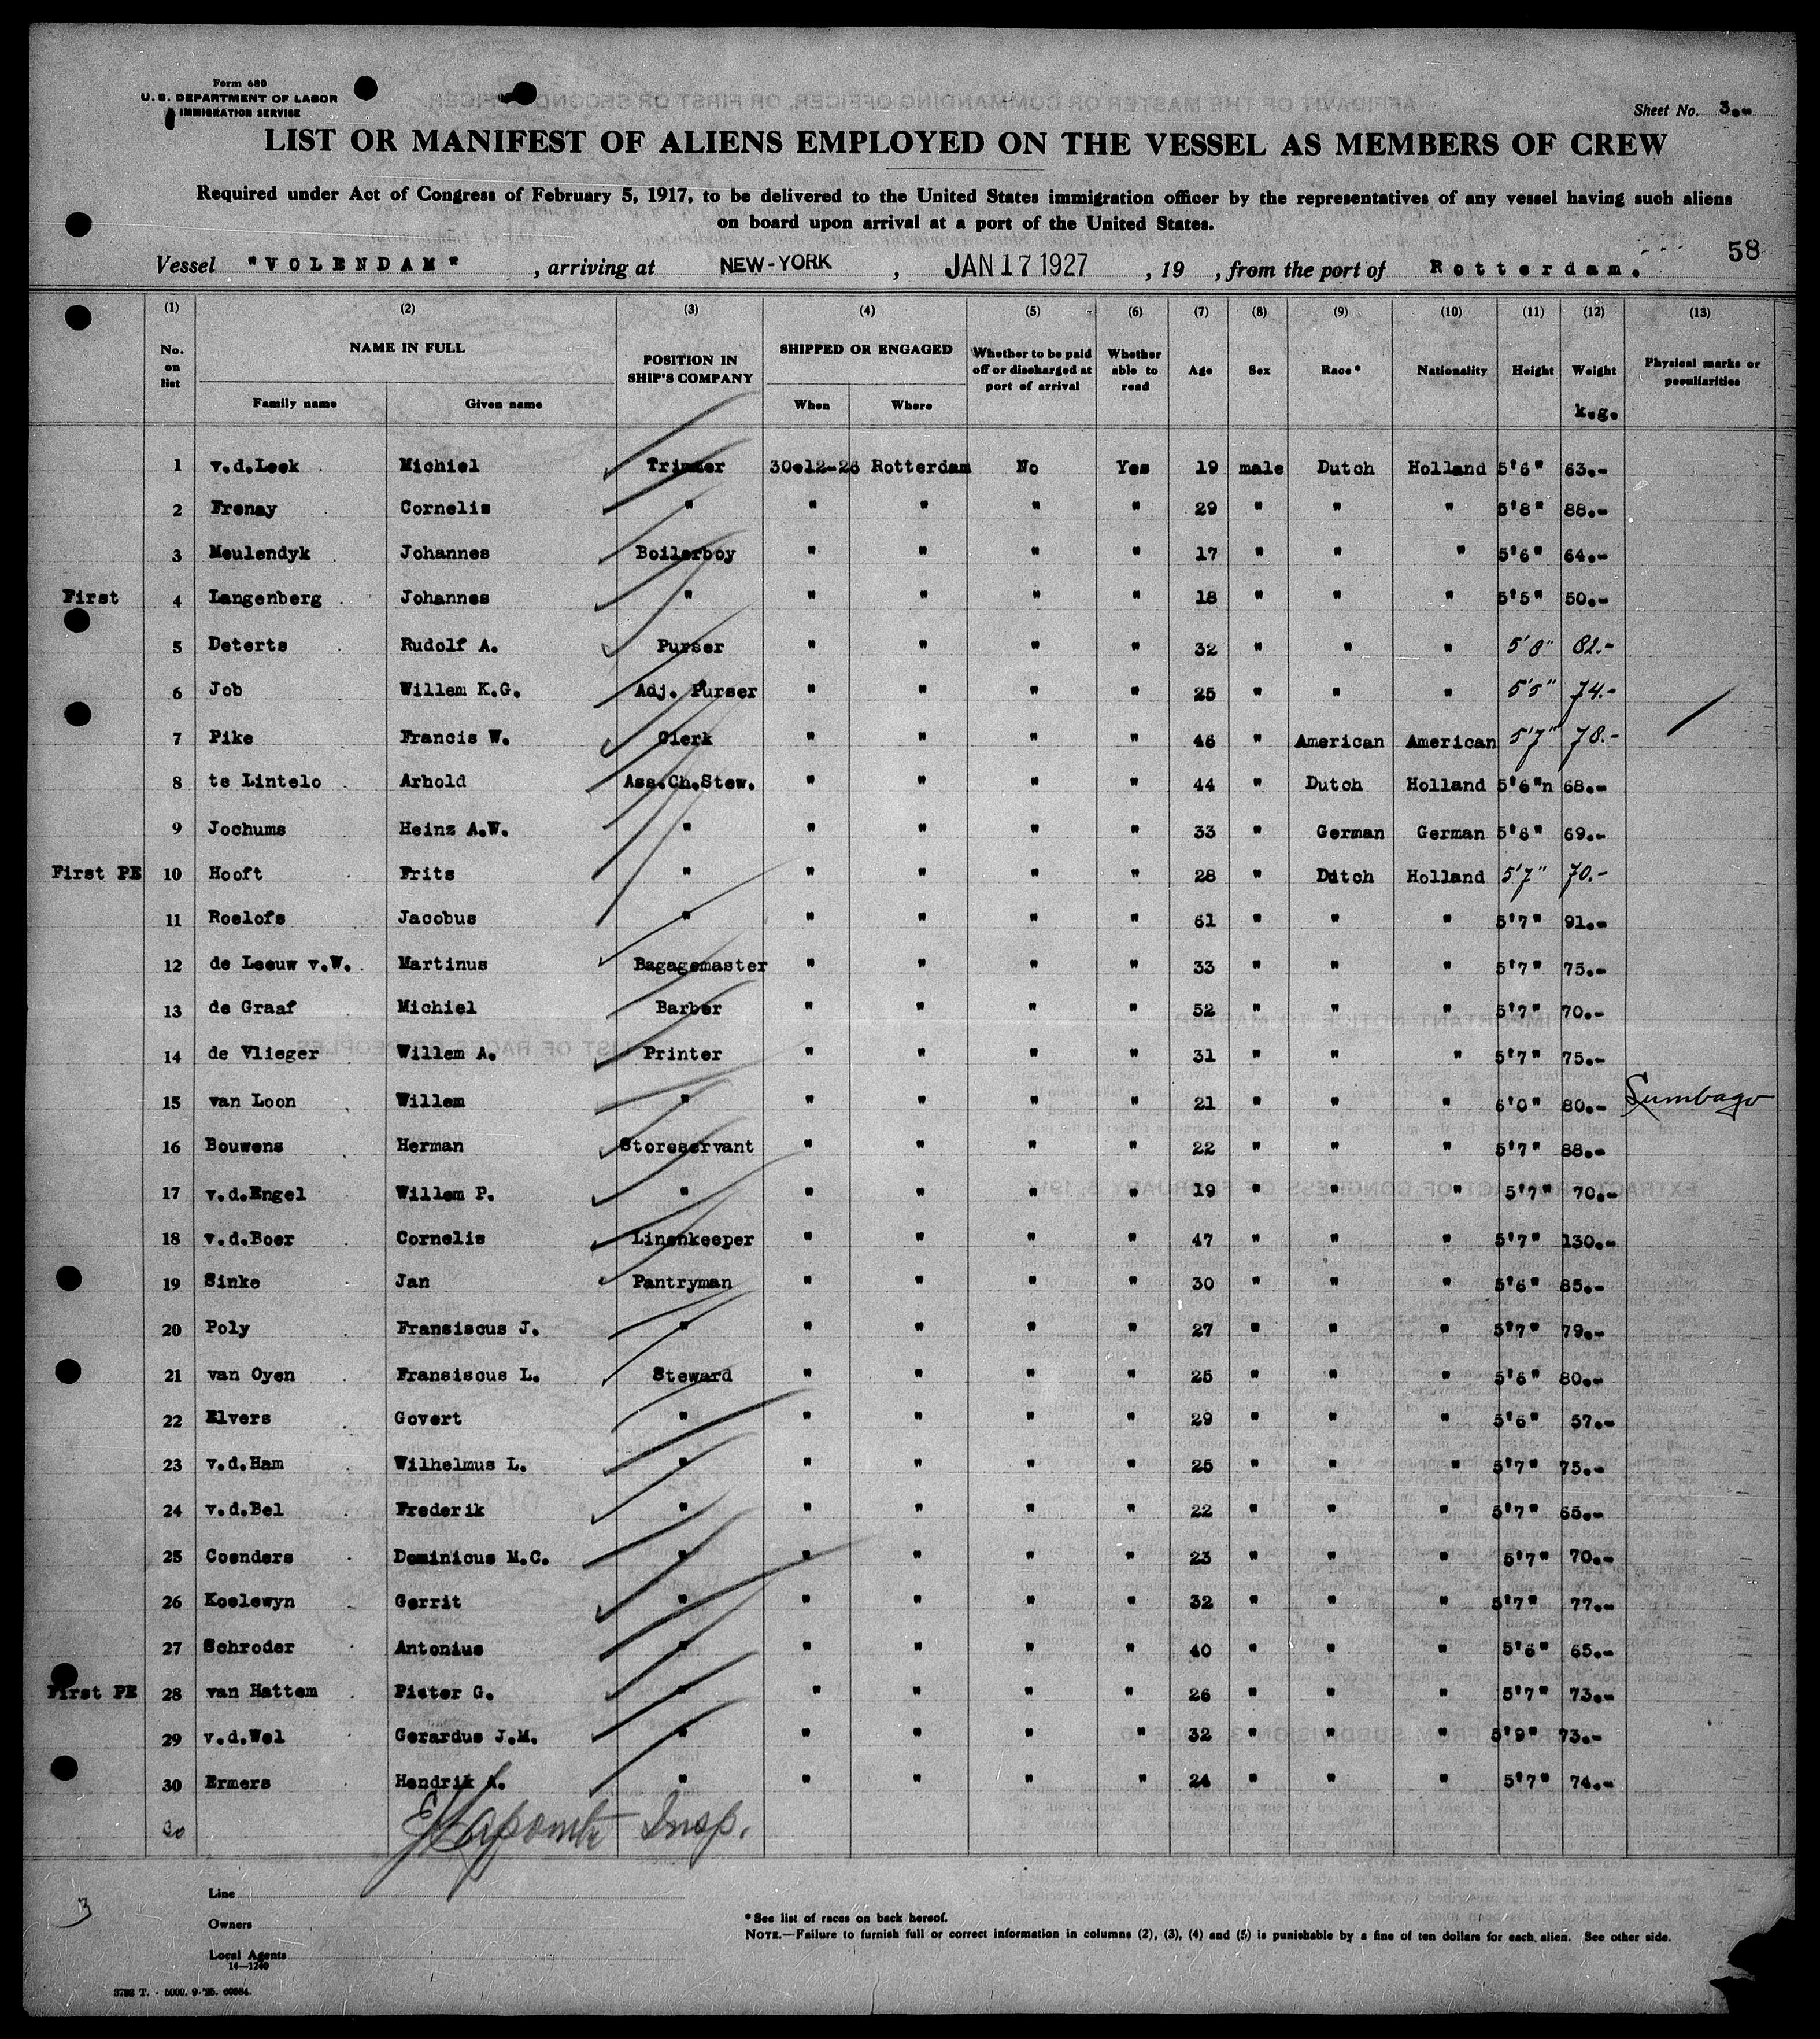 Form 680
U. S. DEPARTMENT OF LABOR
IMMIGRATION SERVICE
Sheet No. 3.-
LIST OR MANIFEST OF ALIENS EMPLOYED ON THE VESSEL AS MEMBERS OF CREW
Required under Act of Congress of February 5, 1917, to be delivered to the United States immigration officer by the representatives of any vessel having such aliens
on board upon arrival at a port of the United States.
58
Vessel "VOLENDAM" , arriving at NEW-YORK , JAN 17 1927 , 19 , from the port of Rotterdam.
(1) (2) (3) (4) (5) (6) (7) (8) (9) (10) (11) (12) (13)
No. on list NAME IN FULL Family name Given name POSITION IN SHIP'S COMPANY SHIPPED OR ENGAGED When Where Whether to be paid off or discharged at port of arrival Whether able to read Age Sex Race* Nationality Height Weight k.g. Physical marks or peculiarities
1 v.d.Leek Michiel Trimmer 30.12-26 Rotterdam No Yes 19 male Dutch Holland 5'6" 63.-
2 Frenay Cornelis " " " " " 29 " " " 5'8" 88.-
3 Meulendyk Johannes Boilerboy " " " " 17 " " " 5'6" 64.-
First 4 Langenberg Johannes " " " " " 18 " " " 5'5" 50.-
5 Deterts Rudolf A. Purser " " " " 32 " " " 5'8" 82.-
6 Job Willem K.G. Adj. Purser " " " " 25 " " " 5'5" 74.-
7 Pike Francis W. Clerk " " " " 46 " American American 5'7" 78.-
8 te Lintelo Arhold Ass.Ch.Stew. " " " " 44 " Dutch Holland 5'6"n 68.-
9 Jochums Heinz A.W. " " " " " 33 " German German 5'6" 69.-
First PE 10 Hooft Frits " " " " " 28 " Dutch Holland 5'7" 70.-
11 Roelofs Jacobus " " " " " 61 " " " 5'7" 91.-
12 de Leeuw v.W. Martinus Bagagemaster " " " " 33 " " " 5'7" 75.-
13 de Graaf Michiel Barber " " " " 52 " " " 5'7" 70.-
14 de Vlieger Willem A. Printer " " " " 31 " " " 5'7" 75.-
15 van Loon Willem " " " " " 21 " " " 6'0" 80.- Lumbago
16 Bouwens Herman Storeservant " " " " 22 " " " 5'7" 88.-
17 v.d.Engel Willem P. " " " " " 19 " " " 5'7" 70.-
18 v.d.Boer Cornelis Linenkeeper " " " " 47 " " " 5'7" 130.-
19 Sinke Jan Pantryman " " " " 30 " " " 5'6" 85.-
20 Poly Fransiscus J. " " " " " 27 " " " 5'7" 79.-
21 van Oyen Fransiscus L. Steward " " " " 25 " " " 5'6" 80.-
22 Elvers Govert " " " " " 29 " " " 5'6" 57.-
23 v.d.Ham Wilhelmus L. " " " " 25 " " " 5'7" 75.-
24 v.d.Bel Frederik " " " " " 22 " " " 5'7" 65.-
25 Coenders Dominicus M.C. " " " " " 23 " " " 5'7" 70.-
26 Koelewyn Gerrit " " " " 32 " " " 5'7" 77.-
27 Schroder Antonius " " " " " 40 " " " 5'6" 65.-
First PE 28 van Hattem Pieter G. " " " " " 26 " " " 5'7" 73.-
29 v.d.Wel Gerardus J.M. " " " " " 32 " " " 5'9" 73.-
30 Ermers Hendrik A. " " " " " 24 " " " 5'7" 74.-
30 Insp.
3
Line
Owners
Local Agents
14—1240
* See list of races on back hereof.
NOTE.—Failure to furnish full or correct information in columns (2), (3), (4) and (5) is punishable by a fine of ten dollars for each alien. See other side.
3782 T. - 5000. 9-'25. 60584.